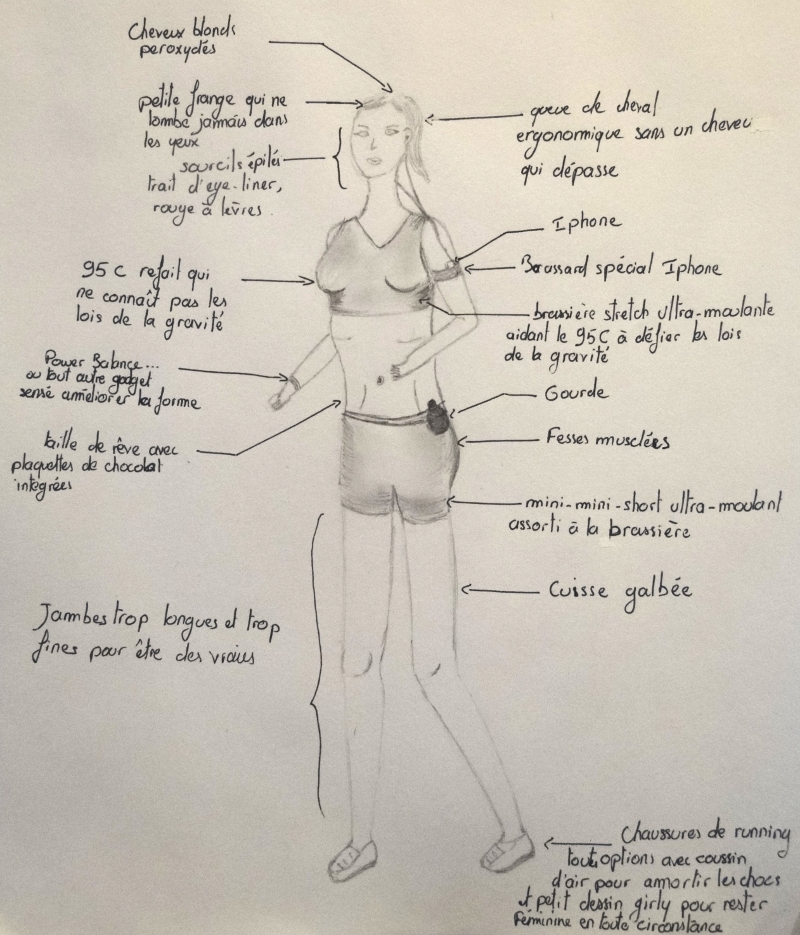 Cheveux blonds
peroxydés
petite frange qui ne
tombe jamais dans
les yeux
sourcils épilés
trait d'eye-liner,
rouge à lèvres.
95 C refait qui
ne connaît pas les
lois de la gravité
Power Balance...
ou tout autre gadget
sensé améliorer la forme
taille de rêve avec
plaquettes de chocolat
intégrées
Jambes trop longues et trop
fines pour être des vraies
queue de cheval
ergonomique sans un cheveu
qui dépasse
Iphone
Brassard spécial Iphone
brassière stretch ultra-moulante
aidant le 95C à défier les lois
de la gravité
Gourde
Fesses musclées
mini-mini-short ultra-moulant
assorti à la brassière
Cuisse galbée
Chaussures de running
toutes options avec coussin
d'air pour amortir les chocs
et petit dessin girly pour rester
féminine en toute circonstance